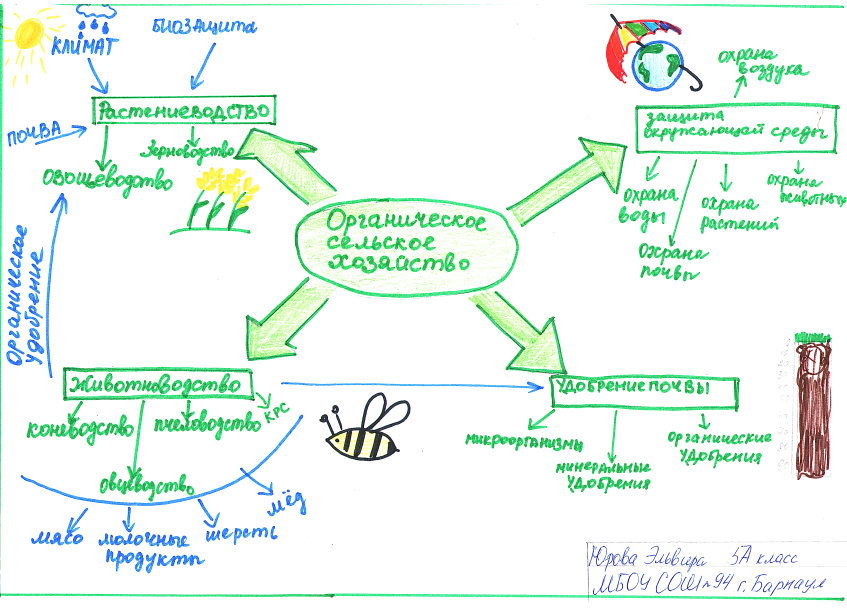 КЛИМАТ
БИОЗАЩИТА
РАСТЕНИЕВОДСТВО
ПОЧВА
Зерноводство
ОВОЩЕВОДСТВО
Органическое
удобрение
Органическое
сельское
хозяйство
охрана
воздуха
защита
окружающей среды
охрана
воды
охрана
растений
охрана
животных
охрана
почвы
Животноводство
КРС
коневодство
пчеловодство
овцеводство
мясо
молочные
продукты
шерсть
мёд
УДОБРЕНИЕ ПОЧВЫ
микроорганизмы
минеральные
удобрения
органические
удобрения
Юрова Эльвира 5А класс
МБОУ СОШ №94 г. Барнаул